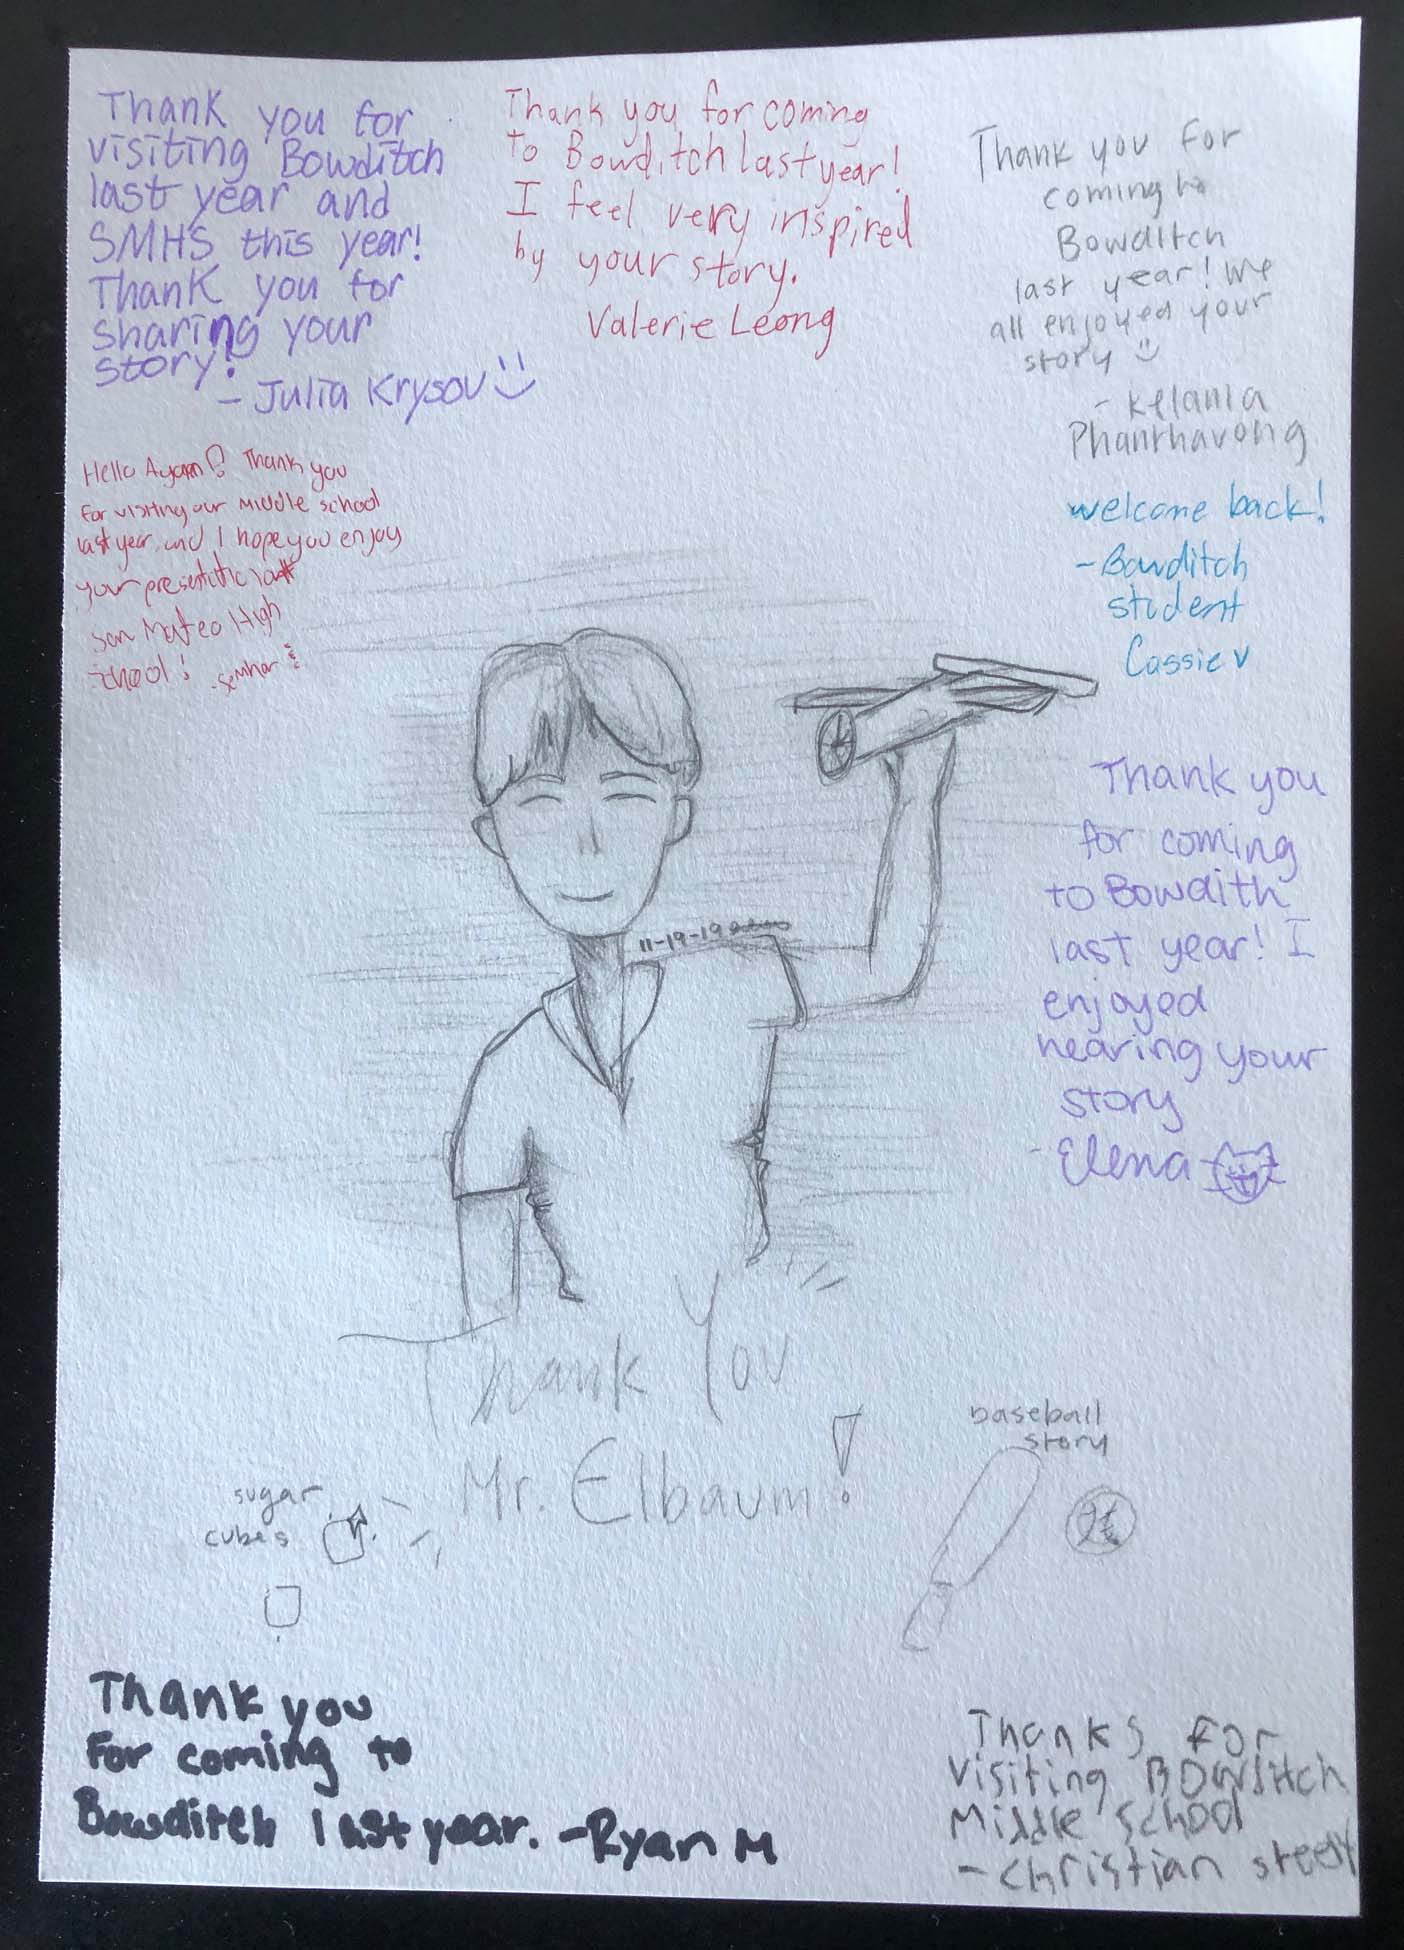 Thank you for
visiting Bowditch
last year and
SMHS this year!
Thank you for
sharing your
story!
- Julia Krysov
Thank you for coming
to Bowditch last year!
I feel very inspired
by your story.
Valerie Leong
Thank you for
coming to
Bowditch
last year! We
all enjoyed your
story
- Kelania
Phanthavong
Hello! Thank you
for visiting our middle school
last year, and I hope you enjoy
your
San Mateo High
School!
-Semhar
welcome back!
-Bowditch
student
Cassie V
Thank you
for coming
to Bowdith
last year! I
enjoyed
hearing your
story
-Elena
11-19-19
Thank You
Mr. Elbaum!
sugar
cubes
baseball
story
Thank you
For coming to
Bowditch last year. -Ryan M
Thanks for
visiting Bowditch
Middle School
- Christian